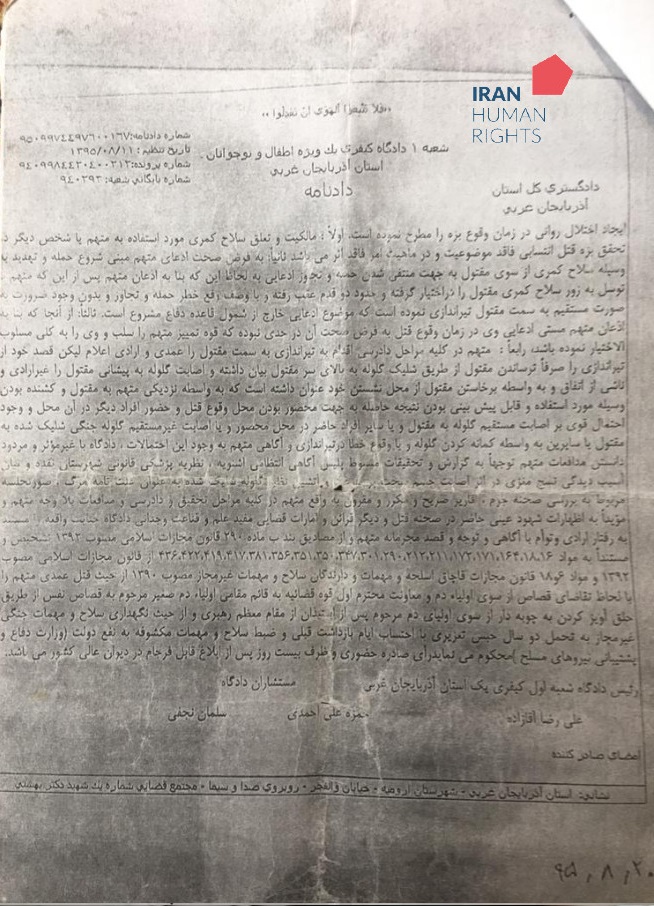 IRAN
HUMAN
RIGHTS
«فلا تتبعوا الهوی ان تعدلوا»
شماره دادنامه: ۹۵۰۹۹۷۴۴۴۹۷۶۰۰۱۶۷
تاریخ تنظیم: ۱۳۹۵/۰۸/۱۱
شماره پرونده: ۹۴۰۹۹۸۴۴۳۰۴۰۰۳۱۲
شماره بایگانی شعبه: ۹۴۰۲۹۳
شعبه ۱ دادگاه کیفری یک ویژه اطفال و نوجوانان
استان آذربایجان غربی
دادنامه
دادگستری کل استان
آذربایجان غربی
ایجاد اختلال روانی در زمان وقوع بزه را مطرح نموده است. اولاً: مالکیت و تعلق سلاح کمری مورد استفاده به متهم یا شخص دیگر در
تحقق بزه قتل انتسابی فاقد موضوعیت و در ماهیت امر فاقد اثر می باشد ثانیاً: به فرض صحت ادعای متهم مبنی شروع حمله و تهدید به
وسیله سلاح کمری از سوی مقتول به جهت منتفی شدن حمله و تجاوز ادعایی به لحاظ این که بنا به اذعان متهم پس از این که متهم با
توسل به زور سلاح کمری مقتول را دراختیار گرفته و حدود دو قدم عقب رفته و با وصف رفع خطر حمله و تجاوز و بدون وجود ضرورت به
صورت مستقیم به سمت مقتول تیراندازی نموده است که موضوع ادعایی خارج از شمول قاعده دفاع مشروع است. ثالثاً: از آنجا که بنا به
اذعان متهم مستی ادعایی وی در زمان وقوع قتل به فرض صحت آن در حدی نبوده که قوه تمییز متهم را سلب و وی را به کلی مسلوب
الاختیار نموده باشد، رابعاً: متهم در کلیه مراحل دادرسی اقدام به تیراندازی به سمت مقتول را عمدی و ارادی اعلام لیکن قصد خود از
تیراندازی را صرفاً ترساندن مقتول از طریق شلیک گلوله به بالای سر مقتول بیان داشته و اصابت گلوله به پیشانی مقتول را غیرارادی و
ناشی از اتفاق و به واسطه برخاستن مقتول از محل نشستن خود عنوان داشته است که به واسطه نزدیکی متهم به مقتول و کشنده بودن
وسیله مورد استفاده و قابل پیش بینی بودن نتیجه حاصله به جهت محصور بودن محل وقوع قتل و حضور افراد دیگر در آن محل و وجود
احتمال قوی بر اصابت مستقیم گلوله به مقتول و یا سایر افراد حاضر در محل محصور و یا اصابت غیرمستقیم گلوله جنگی شلیک شده به
مقتول یا سایرین به واسطه کمانه کردن گلوله و یا وقوع خطا درتیراندازی و آگاهی متهم به وجود این احتمالات، دادگاه با غیرمؤثر و مردود
دانستن مدافعات متهم توجهاً به گزارش و تحقیقات مبسوط پلیس آگاهی انتظامی اشنویه، نظریه پزشکی قانونی شهرستان نقده و بیان
آسیب دیدگی نسج مغزی در اثر اصابت جسم گلوله شلیک شده به عنوان علت تامه مرگ، صورتجلسه
مربوط به بررسی صحنه جرم، اقاریر صریح و مکرر و مقرون به واقع متهم در کلیه مراحل تحقیق و دادرسی و مدافعات بلا وجه متهم و
مؤیداً به اظهارات شهود عینی حاضر در صحنه قتل و دیگر قرائن و امارات قضایی مفید علم و قناعت وجدانی دادگاه جنایت واقعه را مستند
به رفتار ارادی وتوأم با آگاهی و توجه و قصد مجرمانه متهم و از مصادیق بند ب ماده ۲۹۰ قانون مجازات اسلامی مصوب ۱۳۹۲ تشخیص و
مستنداً به مواد ۱۶،۱۸،۱۶۴،۱۷۱،۱۷۲،۲۱۱،۲۱۲،۲۹۰،۳۰۱،۳۴۷،۳۵۰،۳۵۱،۳۵۶،۳۸۱،۴۱۷،۴۱۹،۴۲۲،۴۳۶ از قانون مجازات اسلامی مصوب
۱۳۹۲ و مواد ۶و۱۸ قانون مجازات قاچاق اسلحه و مهمات و دارندگان سلاح و مهمات غیرمجاز مصوب ۱۳۹۰ از حیث قتل عمدی متهم را
با لحاظ تقاضای قصاص از سوی اولیاء دم و معاونت محترم اول قوه قضائیه به قائم مقامی اولیاء دم صغیر مرحوم به قصاص نفس از طریق
حلق آویز کردن به چوبه دار از سوی اولیای دم مرحوم پس از استیذان از مقام معظم رهبری و از حیث نگهداری سلاح و مهمات جنگی
غیرمجاز به تحمل دو سال حبس تعزیری با احتساب ایام بازداشت قبلی و ضبط سلاح و مهمات مکشوفه به نفع دولت (وزارت دفاع و
پشتیبانی نیروهای مسلح) محکوم می نماید. رأی صادره حضوری و ظرف بیست روز پس از ابلاغ قابل فرجام در دیوان عالی کشور می باشد.
رئیس دادگاه شعبه اول کیفری یک استان آذربایجان غربی مستشاران دادگاه
علی رضا آقازاده حمزه علی احمدی سلمان نجفی
امضای صادر کننده
نشانی: استان آذربایجان غربی - شهرستان ارومیه - خیابان والفجر - روبروی صدا و سیما - مجتمع قضایی شماره یک شهید دکتر بهشتی
۹۵،۸،۲۰